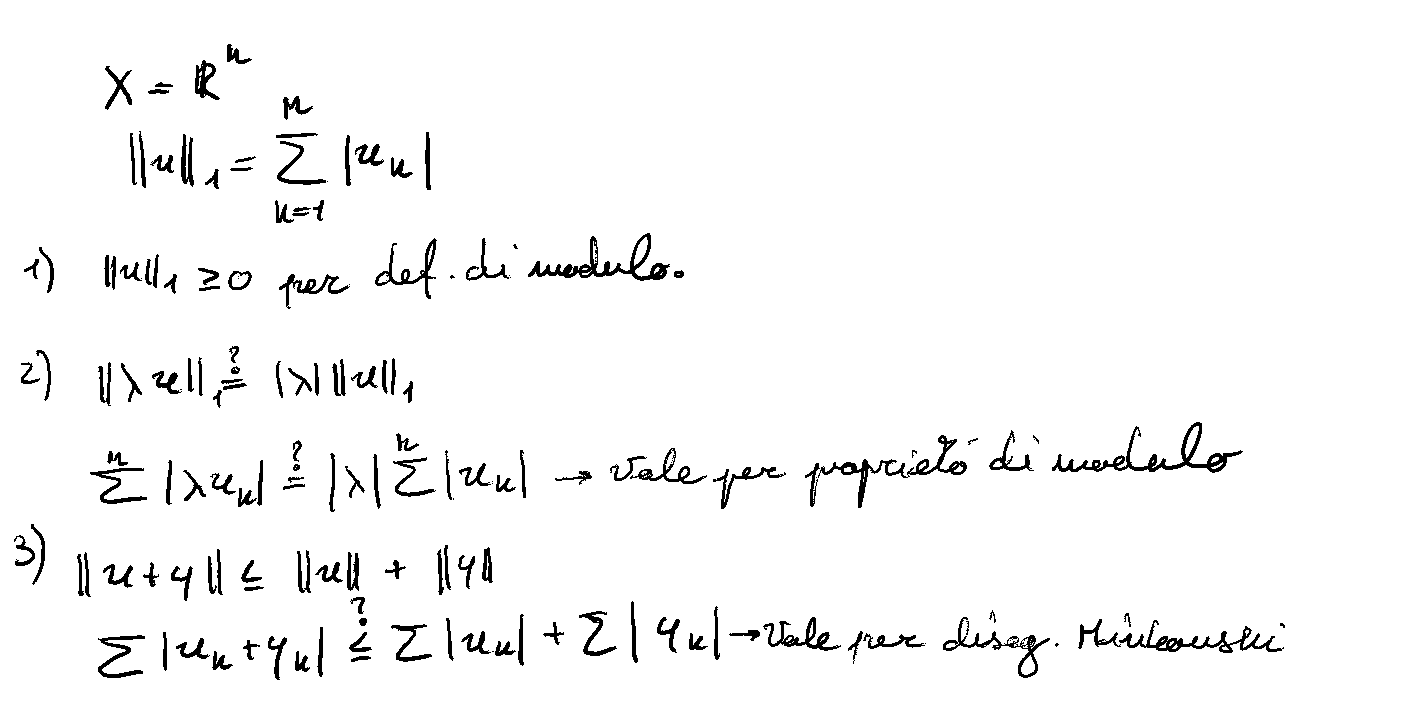 X = ℝⁿ
‖x‖₁ = ∑_{k=1}^{n} |x_k|
1) ‖x‖₁ ≥ 0 per def. di modulo.
2) ‖λx‖₁ ≟ |λ| ‖x‖₁
∑^{n} |λx_k| ≟ |λ| ∑^{n} |x_k| → Vale per proprietà di modulo
3) ‖x+y‖ ≤ ‖x‖ + ‖y‖
∑ |x_k + y_k| ≤^{?} ∑ |x_k| + ∑ |y_k| → Vale per diseg. Minkowski